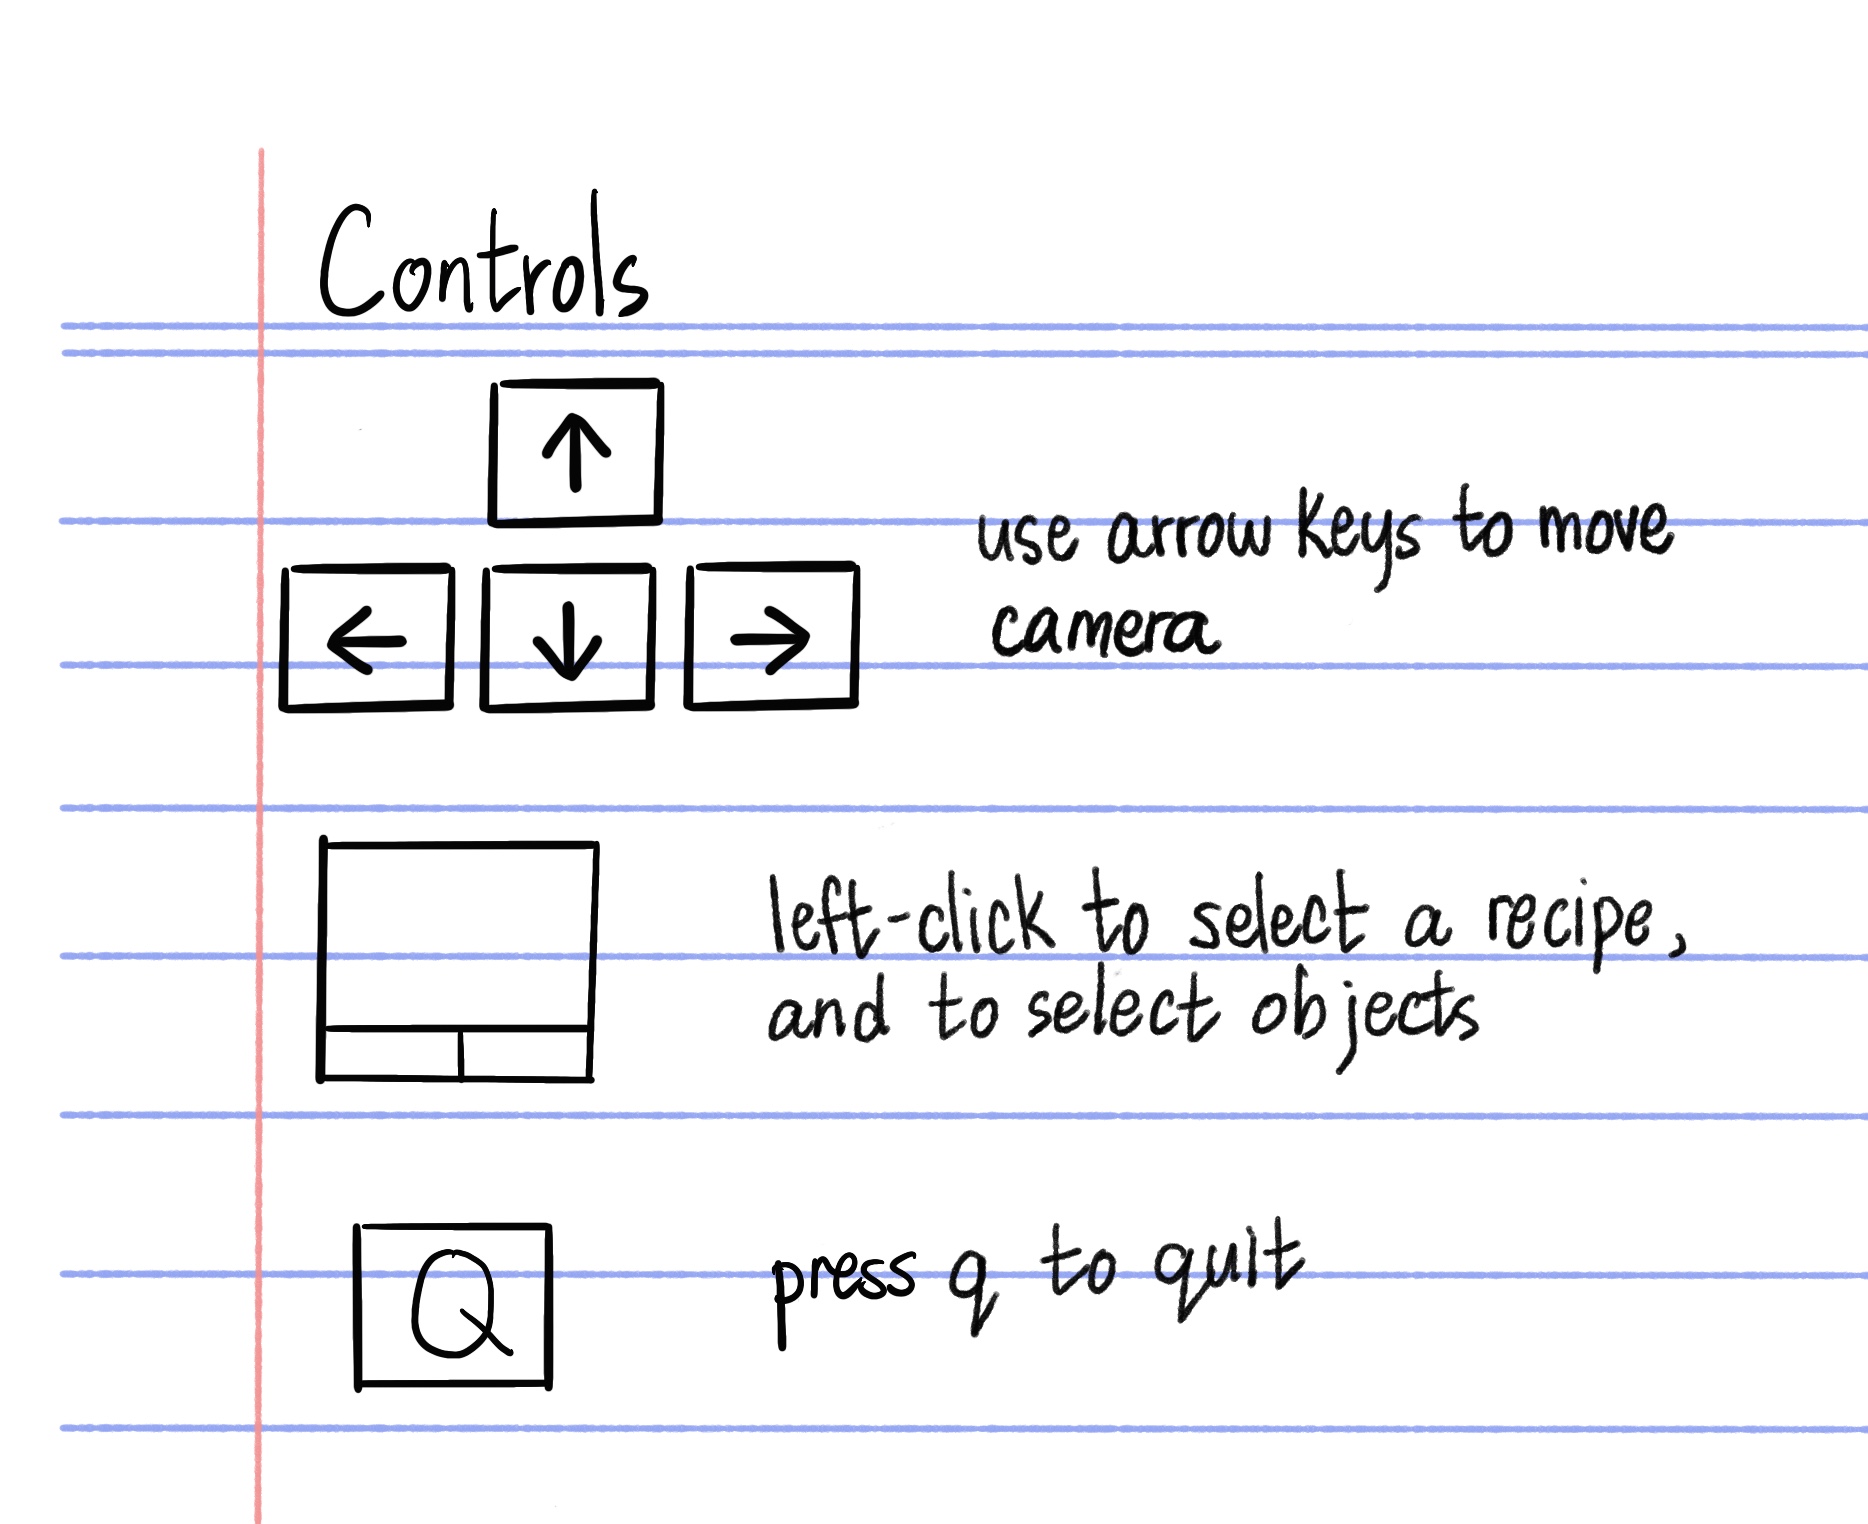 Controls
↑
← ↓ →
use arrow keys to move
camera
left-click to select a recipe,
and to select objects
Q
press q to quit